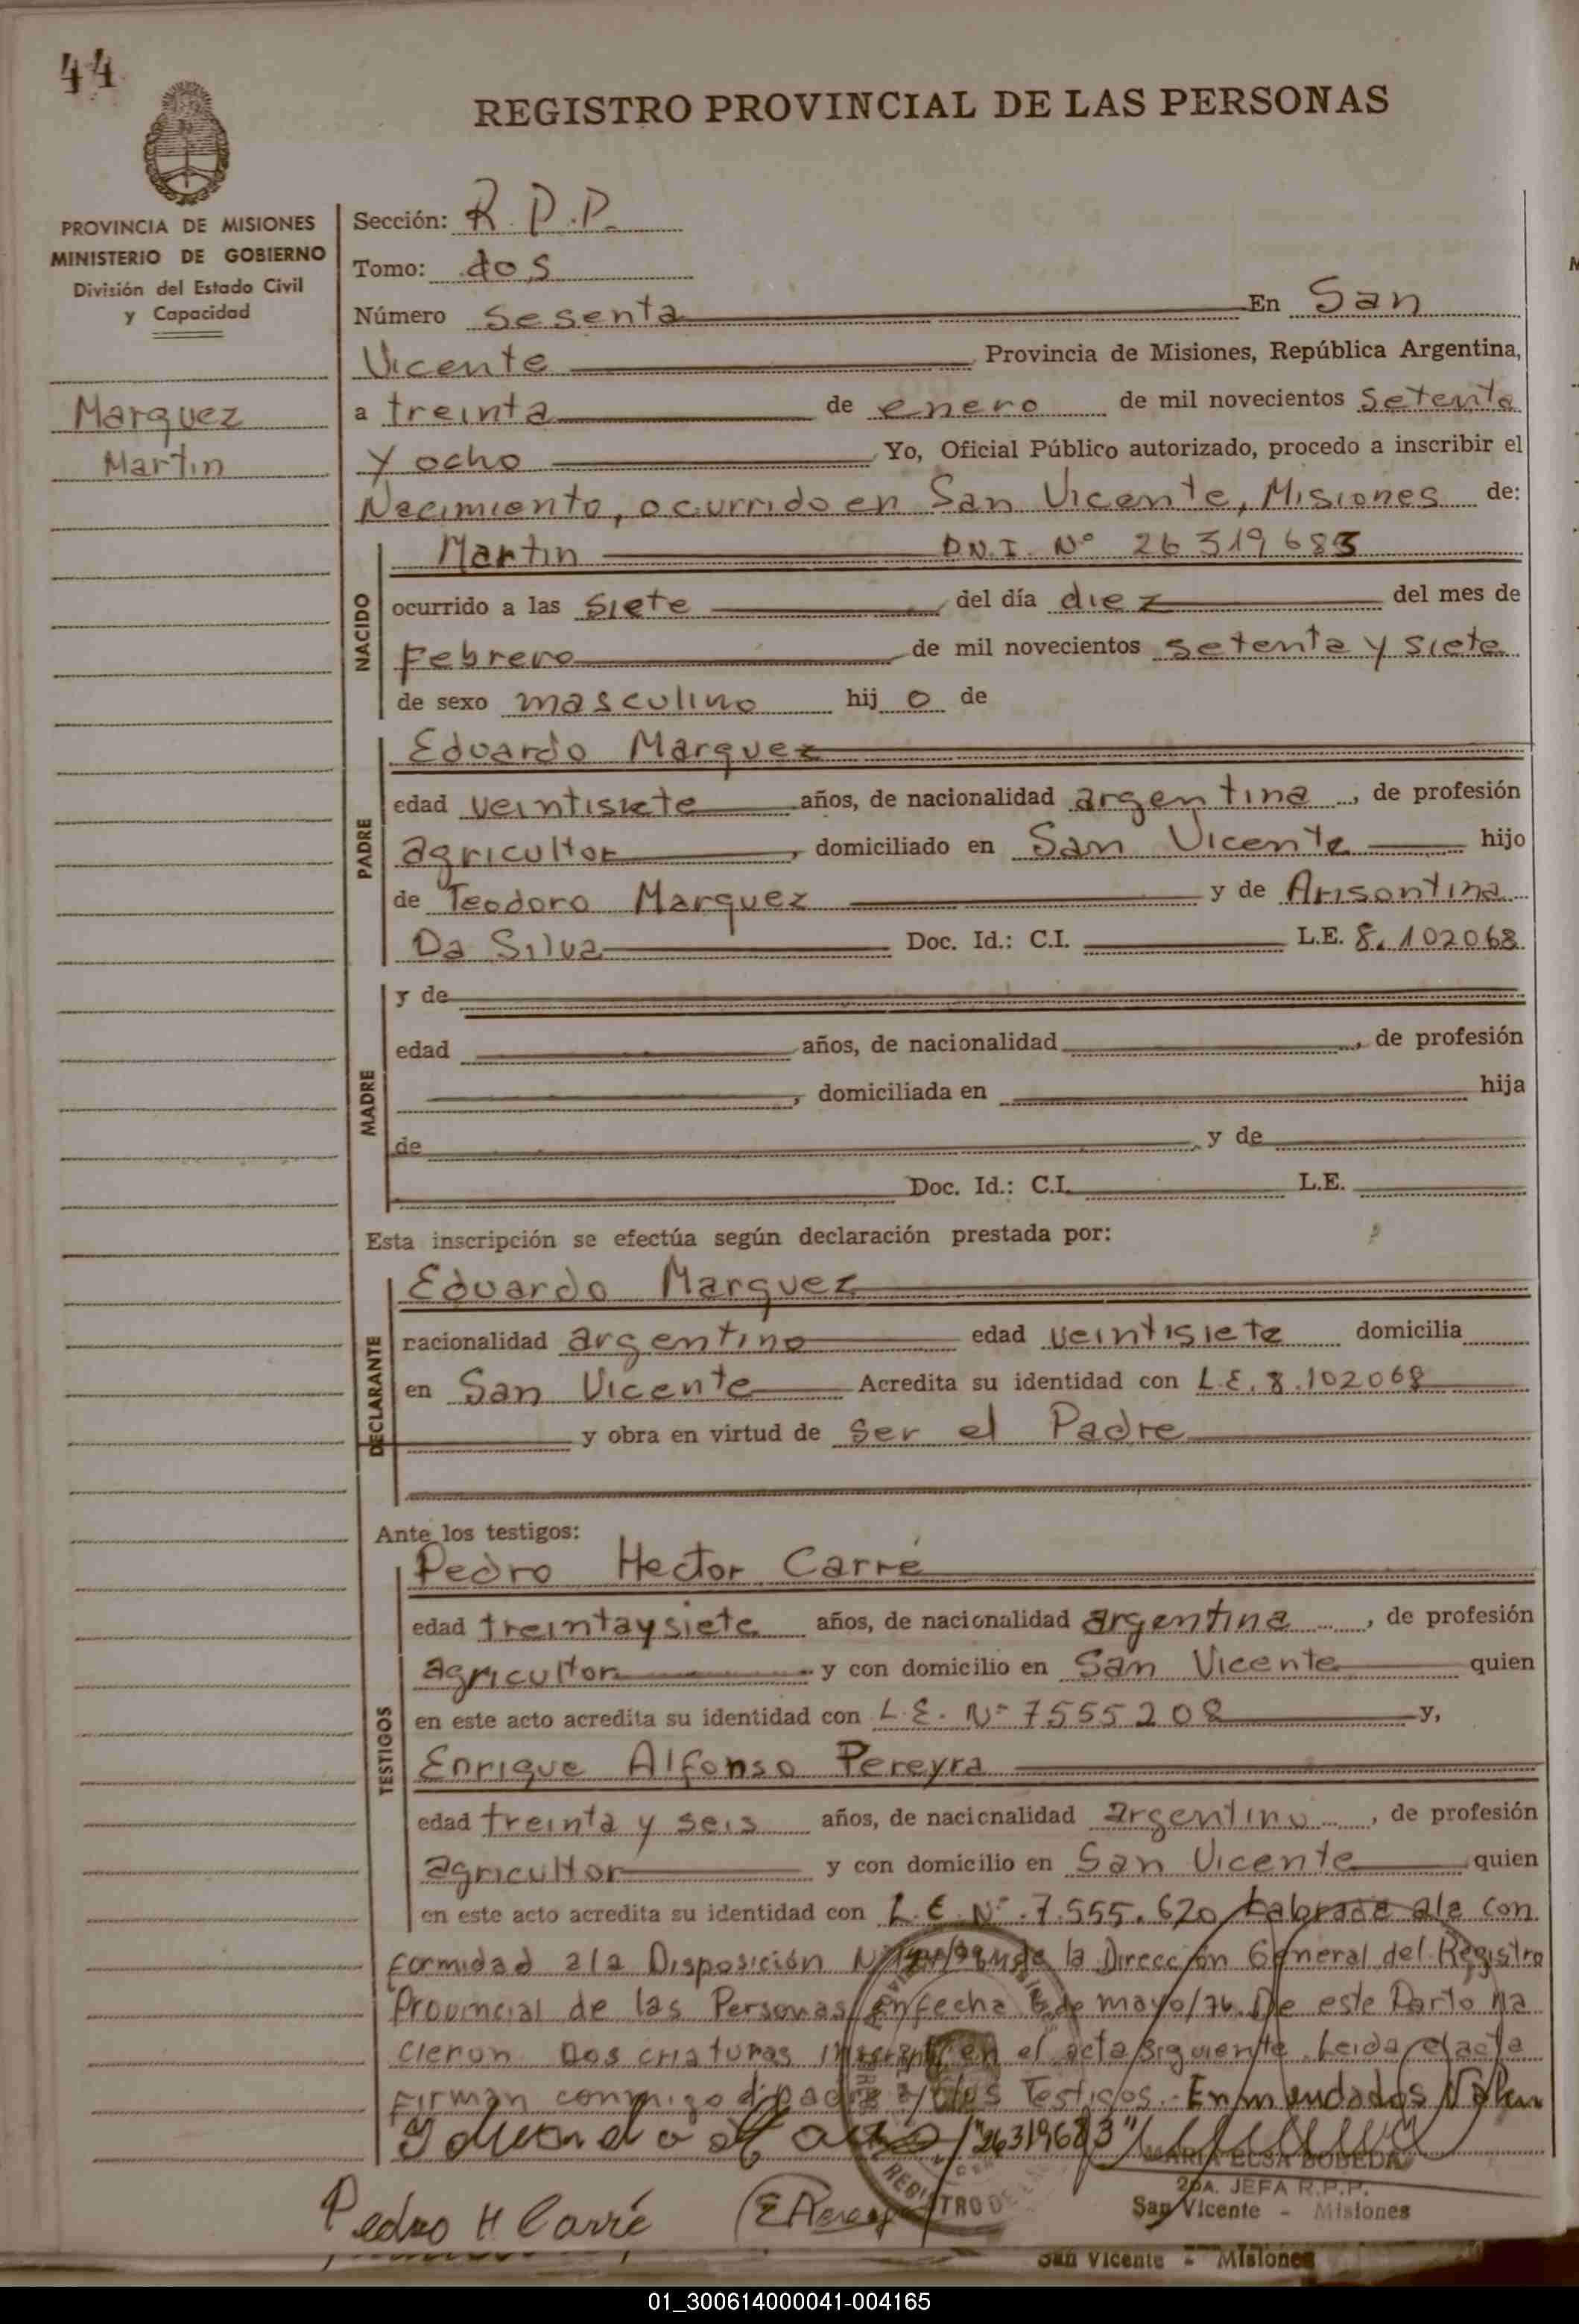 44
REGISTRO PROVINCIAL DE LAS PERSONAS
PROVINCIA DE MISIONES
MINISTERIO DE GOBIERNO
División del Estado Civil
y Capacidad
Marquez
Martin
Sección: R.P.P.
Tomo: dos
Número sesenta En San
Vicente Provincia de Misiones, República Argentina,
a treinta de enero de mil novecientos setenta
y ocho Yo, Oficial Público autorizado, procedo a inscribir el
Nacimiento, ocurrido en San Vicente, Misiones de:
NACIDO
Martin D.N.I. Nº 26319683
ocurrido a las siete del día diez del mes de
Febrero de mil novecientos setenta y siete
de sexo masculino hij o de
PADRE
Eduardo Marquez
edad veintisiete años, de nacionalidad argentina, de profesión
agricultor, domiciliado en San Vicente hijo
de Teodoro Marquez y de Arisontina
Da Silva Doc. Id.: C.I. L.E. 8.102068
MADRE
y de
edad años, de nacionalidad , de profesión
, domiciliada en hija
de y de
Doc. Id.: C.I. L.E.
Esta inscripción se efectúa según declaración prestada por:
DECLARANTE
Eduardo Marquez
nacionalidad argentino edad veintisiete domicilia
en San Vicente Acredita su identidad con L.E. 8.102068
y obra en virtud de ser el Padre
Ante los testigos:
TESTIGOS
Pedro Hector Carré
edad treintaysiete años, de nacionalidad argentina, de profesión
agricultor y con domicilio en San Vicente quien
en este acto acredita su identidad con L.E. Nº 7555208 y,
Enrique Alfonso Pereyra
edad treinta y seis años, de nacionalidad argentino, de profesión
agricultor y con domicilio en San Vicente quien
en este acto acredita su identidad con L.E. Nº 7.555.620 Labrada ala con
formidad ala Disposición de la Dirección General del Registro
Provincial de las Personas en fecha de mayo/76. De este Parto na
cieron Dos criaturas en el acta siguiente. Leida el acta
firman conmigo padre y los Testigos. Enmendados Valen
"26319683"
MARIA ELSA BOBEDA
2DA. JEFA R.P.P.
San Vicente - Misiones
Pedro H Carré
San Vicente - Misiones
01_300614000041-004165